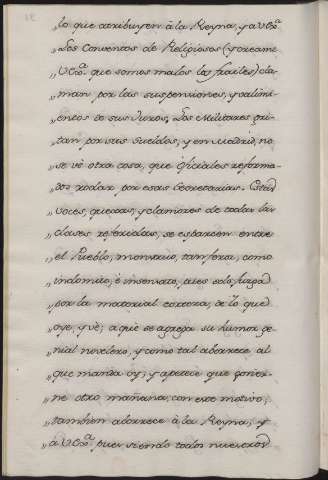 „lo que atribuyen à la Reyna, y a V.Exa.
„Los Conventos de Religiosos (y creame
„V.Exa. que somos malos los frailes) cla-
„man por las suspensiones, y
„ de sus Juros, Los Militares gri-
„tan por sus sueldos; y en Madrid, no
„se vè otra cosa, que oficiales reforma-
„dos rodar por esas Secretarias. Estas
„voces, quexas, y clamores de todas las
„clases referidas, se esparcen entre
„el Pueblo, monstruo, tan feroz, como
„indomito, è insensato, pues solo juzga
„por la material corteza, de lo que
„oye, y vè; a que se agrega su humor ge-
„nial novelero, y como tal aborrece al
„que manda oy; y apetece que govier-
„ne otro mañana, con este motivo,
„tambien aborrece à la Reyna; y
„à V.Exa. pues siendo todos nuestros